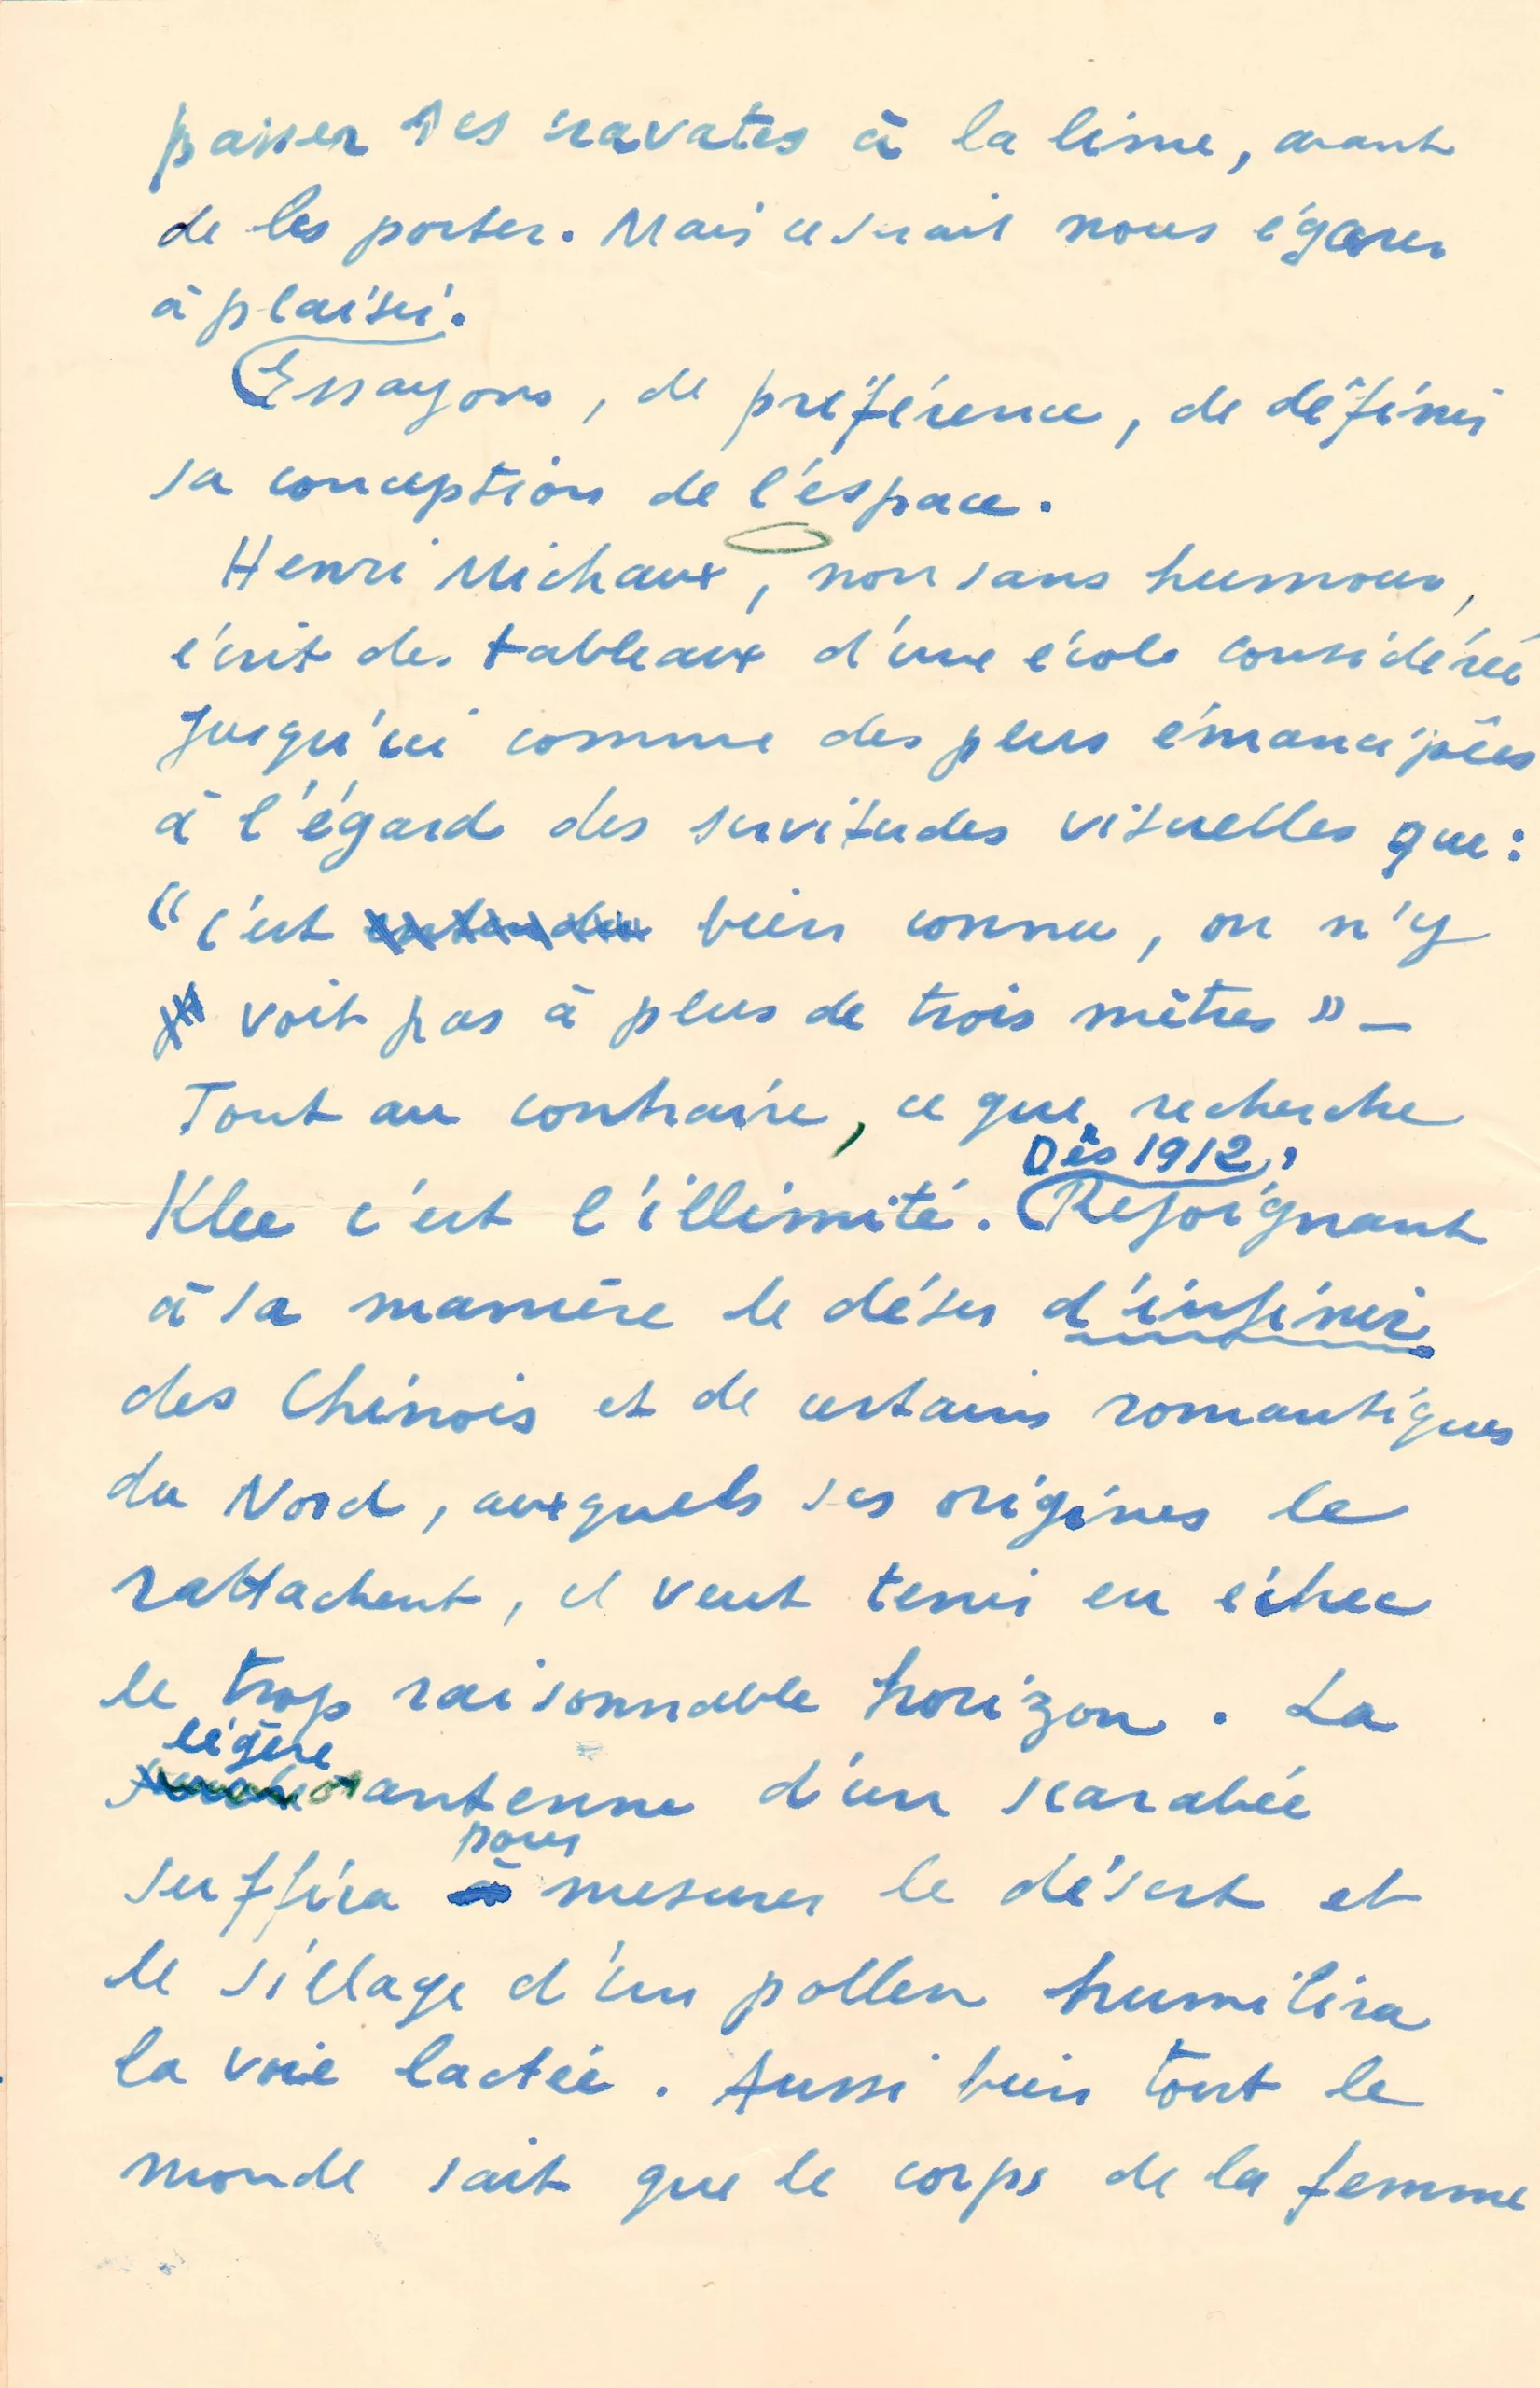 passer ses cravates à la lime, avant
de les porter. Mais ce serait nous égarer
à plaisir.
Essayons, de préférence, de définir
sa conception de l'espace.
Henri Michaux, non sans humour,
écrit des tableaux d'une école considérée
jusqu'ici comme des plus émancipées
à l'égard des servitudes visuelles que :
"c'est entendu bien connu, on n'y
voit pas à plus de trois mètres" —
Tout au contraire, ce que recherche
Dès 1912,
Klee c'est l'illimité. Rejoignant
à sa manière le désir d'infini
des Chinois et de certains romantiques
du Nord, auxquels ses origines le
rattachent, il veut tenir en échec
le trop raisonnable horizon. La
légère
antenne d'un scarabée
pour
suffira à mesurer le désert et
le sillage d'un pollen humiliera
la voie lactée. Aussi bien tout le
monde sait que le corps de la femme